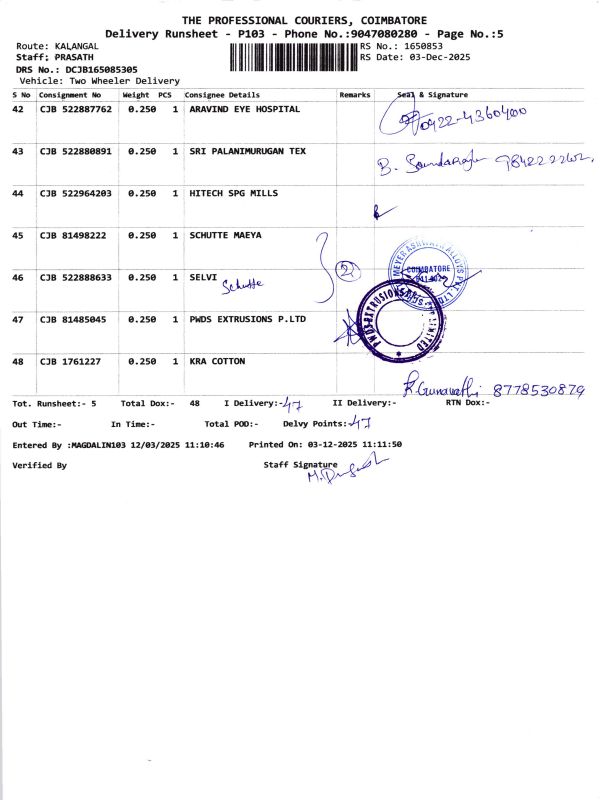 THE PROFESSIONAL COURIERS, COIMBATORE
Delivery Runsheet - P103 - Phone No.:9047080280 - Page No.:5
Route: KALANGAL
RS No.: 1650853
Staff; PRASATH
RS Date: 03-Dec-2025
DRS No.: DCJB165085305
Vehicle: Two Wheeler Delivery
S No Consignment No Weight PCS Consignee Details Remarks Seal & Signature
42 CJB 522887762 0.250 1 ARAVIND EYE HOSPITAL
0422-4360400
43 CJB 522880891 0.250 1 SRI PALANIMURUGAN TEX
44 CJB 522964203 0.250 1 HITECH SPG MILLS
45 CJB 81498222 0.250 1 SCHUTTE MAEYA
46 CJB 522888633 0.250 1 SELVI
Schutte
2
COIMBATORE
47 CJB 81485045 0.250 1 PWDS EXTRUSIONS P.LTD
48 CJB 1761227 0.250 1 KRA COTTON
8778530879
Tot. Runsheet:- 5 Total Dox:- 48 I Delivery:- 47 II Delivery:- RTN Dox:-
Out Time:- In Time:- Total POD:- Delvy Points:- 47
Entered By :MAGDALIN103 12/03/2025 11:10:46 Printed On: 03-12-2025 11:11:50
Verified By Staff Signature